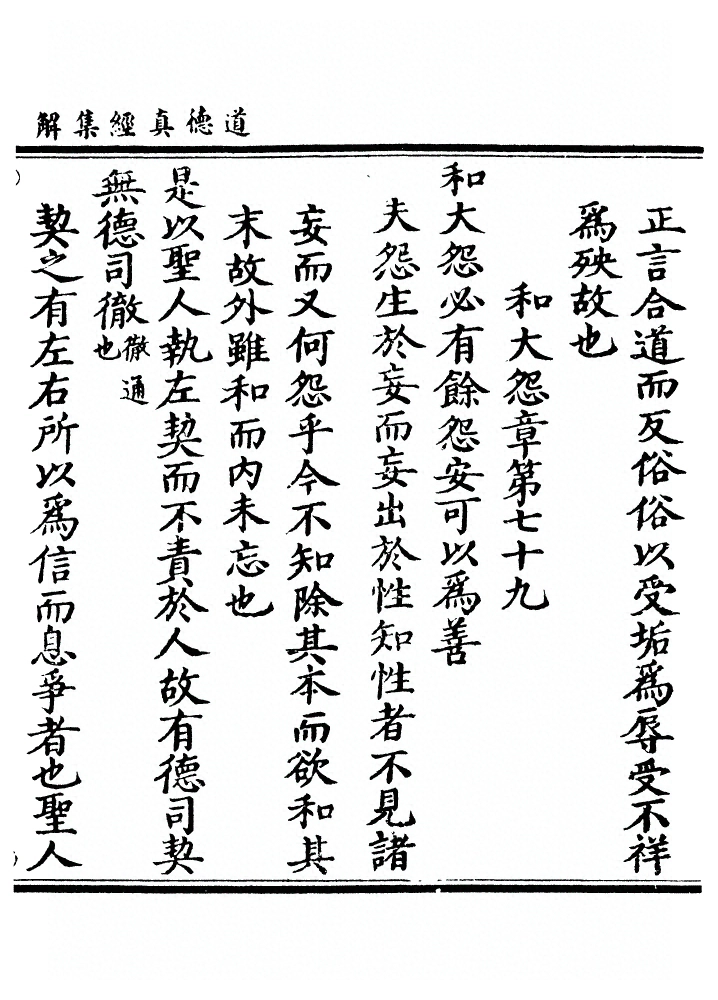 道德真經集解
正言合道而反俗俗以受垢爲辱受不祥
爲殃故也
和大怨章第七十九
和大怨必有餘怨安可以爲善
夫怨生於妄而妄出於性知性者不見諸
妄而又何怨乎今不知除其本而欲和其
末故外雖和而内未忘也
是以聖人執左契而不責於人故有德司契
無德司徹徹通也
契之有左右所以爲信而息爭者也聖人